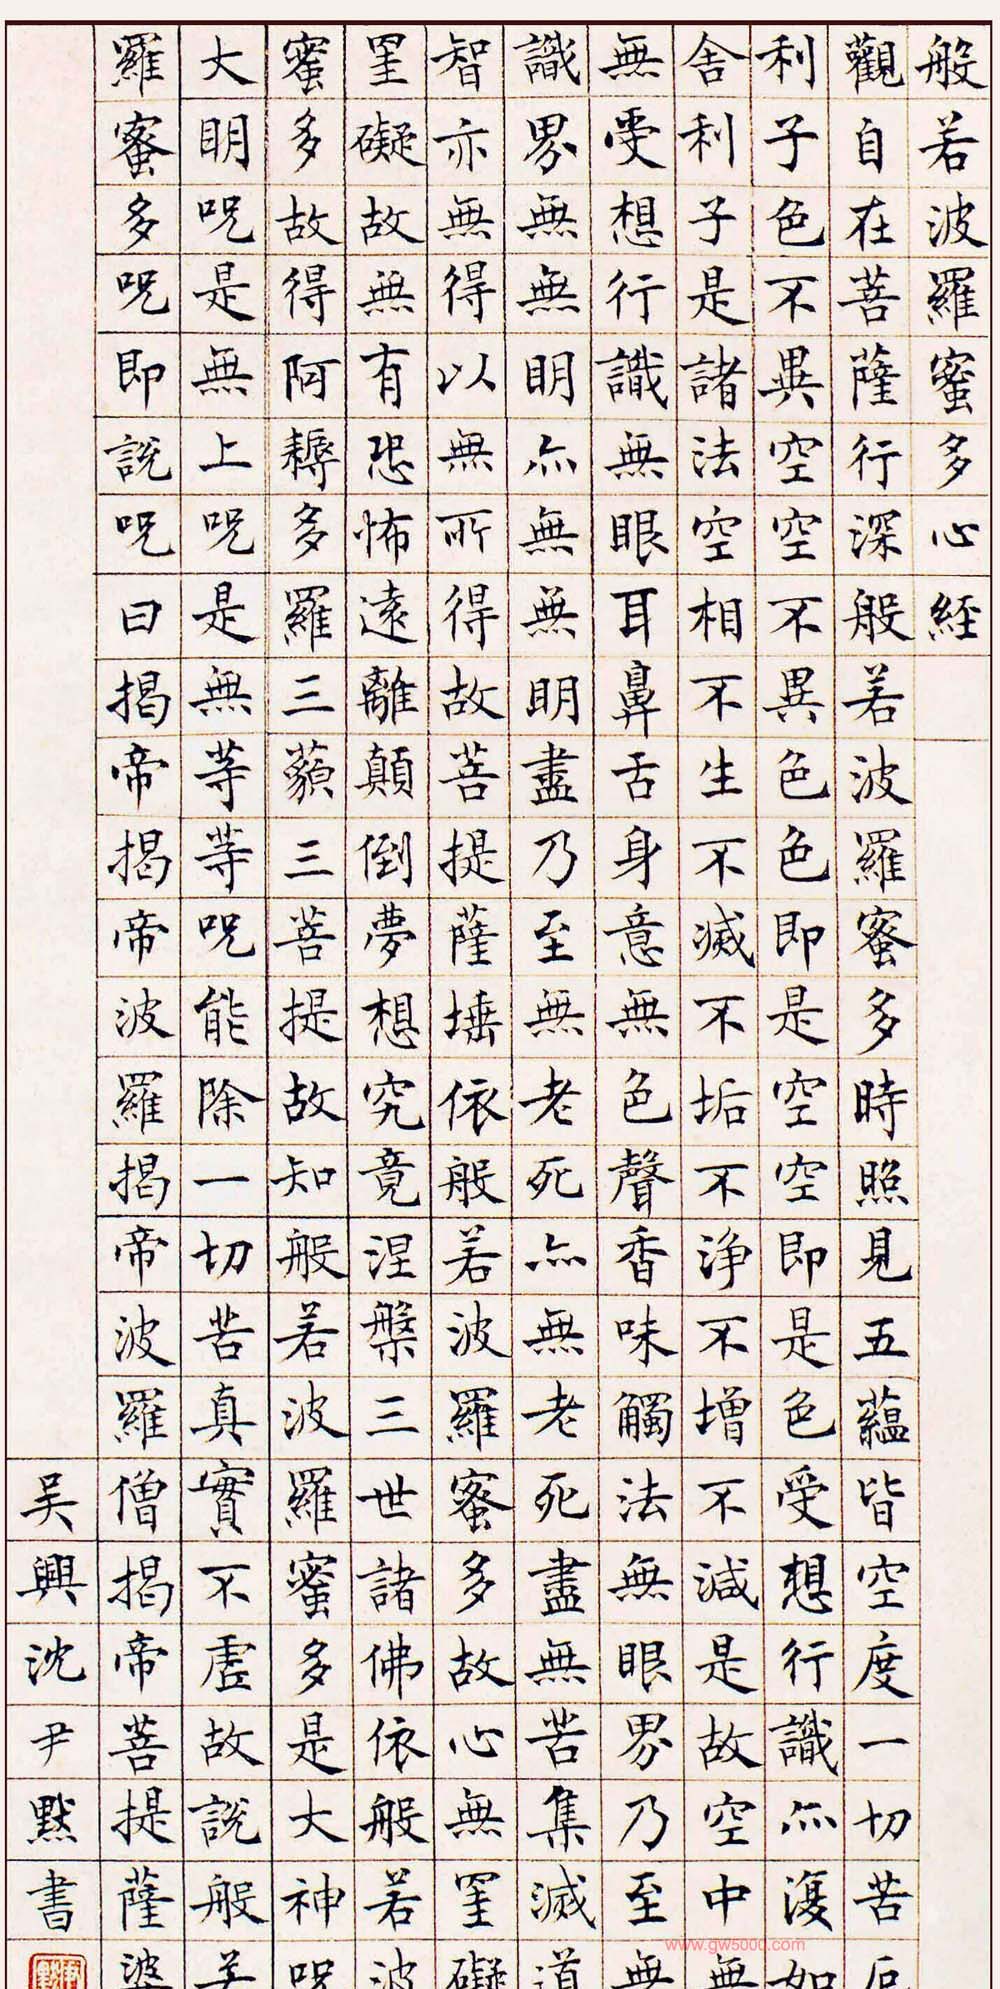 般若波羅蜜多心經
觀自在菩薩行深般若波羅蜜多時照見五蘊皆空度一切苦厄
利子色不異空空不異色色即是空空即是色受想行識亦復如
舍利子是諸法空相不生不滅不垢不淨不增不減是故空中無
無受想行識無眼耳鼻舌身意無色聲香味觸法無眼界乃至無
識界無無明亦無無明盡乃至無老死亦無老死盡無苦集滅道
智亦無得以無所得故菩提薩埵依般若波羅蜜多故心無罣礙
罣礙故無有恐怖遠離顛倒夢想究竟涅槃三世諸佛依般若波
蜜多故得阿耨多羅三藐三菩提故知般若波羅蜜多是大神咒
大明咒是無上咒是無等等咒能除一切苦真實不虛故說般若
羅蜜多咒即說咒曰揭帝揭帝波羅揭帝波羅僧揭帝菩提薩婆
吳興沈尹默書
www.gw5000.com